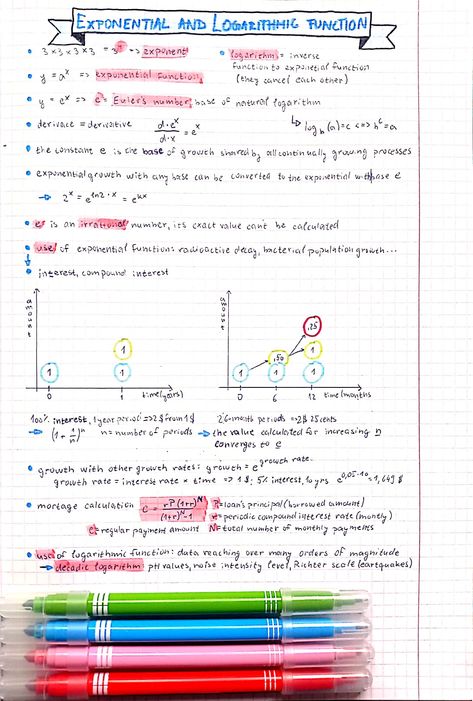 EXPONENTIAL AND LOGARITHMIC FUNCTION
• 3×3×3×3 = 3⁴ => exponent
• y = aˣ => exponential function
• y = eˣ => e = Euler's number, base of natural logarithm
• logarithm = inverse
function to exponential function
(they cancel each other)
↳ log_b(a)=c <=> bᶜ=a
• derivace = derivative d·eˣ/d·x = eˣ
• the constant e is the base of growth shared by all continually growing processes
• exponential growth with any base can be converted to the exponential with base e
→ 2ˣ = e^(ln2·x) = e^(kx)
• e is an irrational number, its exact value can't be calculated
• use of exponential function: radioactive decay, bacterial population growth...
• interest, compound interest
amount
1
1 1
0 1 time (years)
amount
.25
.50 1
1 1 1
0 6 12 time (months
100% interest, 1 year period => 2$ from 1$
→ (1 + 1/n)ⁿ n = number of periods
2 6-month periods => 2$ 25 cents
→ the value calculated for increasing n
converges to e
• growth with other growth rates: growth = e^growth rate
growth rate = interest rate × time => 1$, 5% interest, 10 yrs e^(0,05·10) = 1,649 $
• mortage calculation c = rP(1+r)^N / (1+r)^N - 1
P = loan's principal (borrowed amount)
r = periodic compound interest rate (montly)
c = regular payment amount N = total number of monthly payments
• use of logarithmic function: data reaching over many orders of magnitude
→ decadic logarithm pH values, noise intensity level, Richter scale (earthquakes)